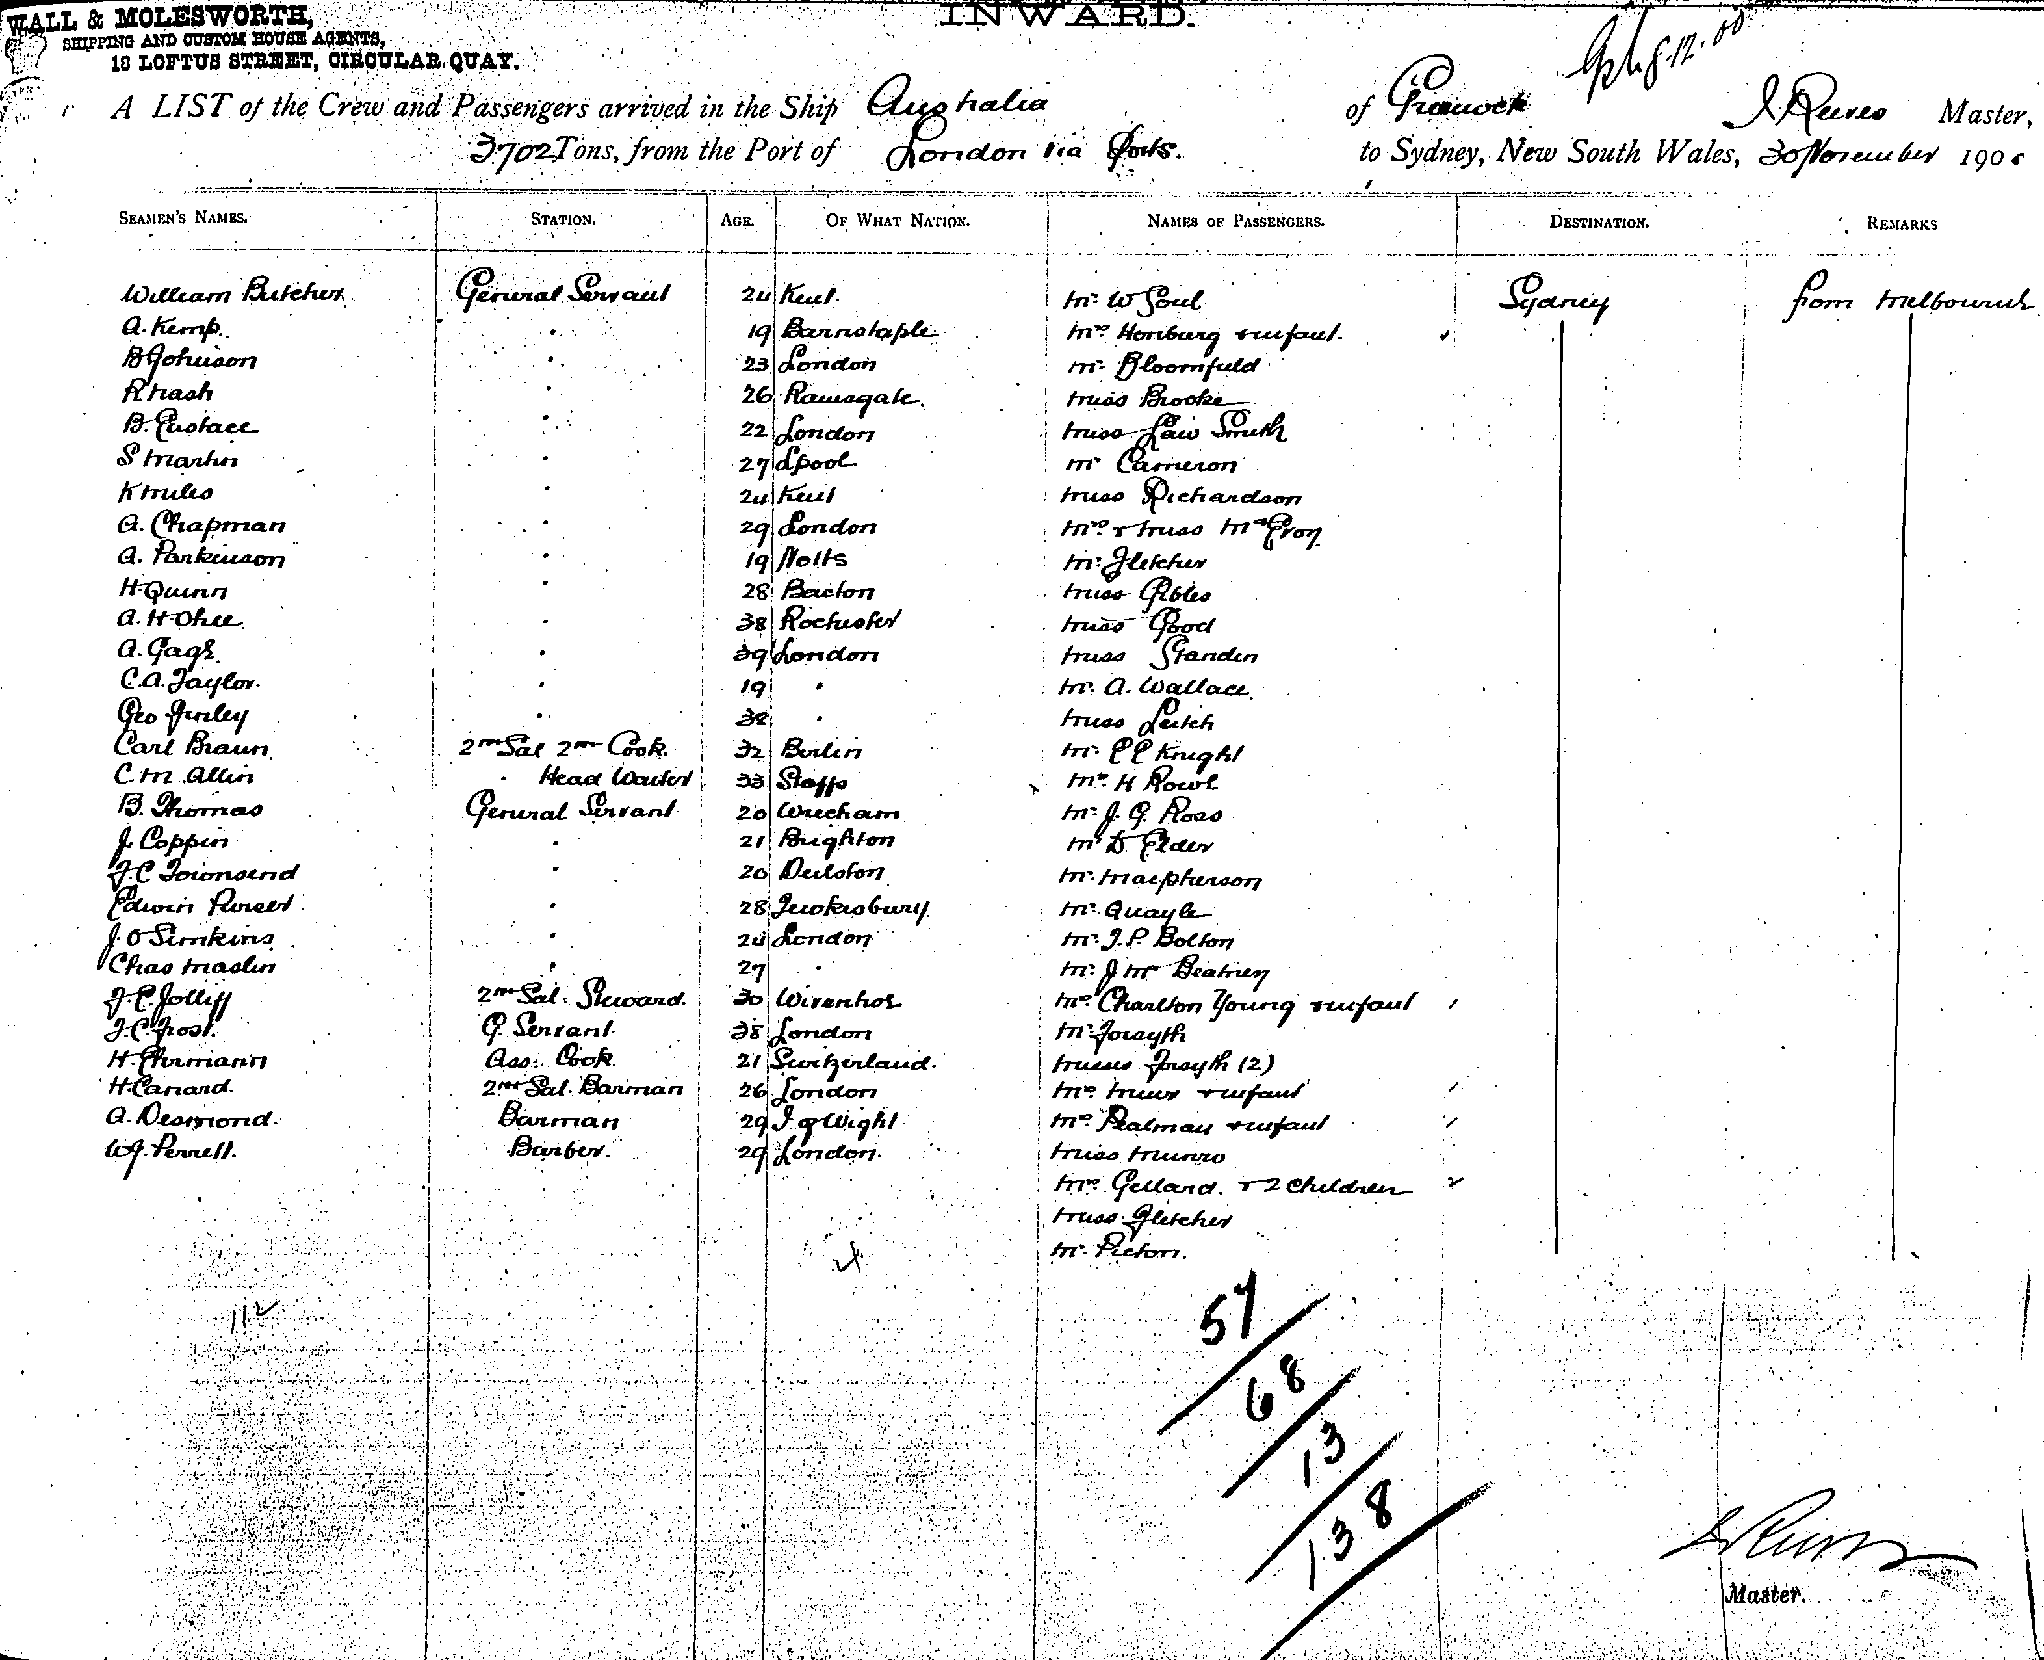 WALL & MOLESWORTH,
SHIPPING AND CUSTOM HOUSE AGENTS,
13 LOFTUS STREET, CIRCULAR QUAY.
INWARD.
8.12.00
A LIST of the Crew and Passengers arrived in the Ship Australia of Greenock Reeves Master,
3702 Tons, from the Port of London via Ports. to Sydney, New South Wales, 30 November 190
SEAMEN'S NAMES. STATION. AGE. OF WHAT NATION. NAMES OF PASSENGERS. DESTINATION. REMARKS
William Butcher General Servant 24 Kent. Mr. W Soul Sydney from Melbourne
A. Kemp. " 19 Barnstaple Mrs Homburg & infant.
B Johnson " 23 London Mr. Bloomfield
R Nash " 26 Ramsgate. Miss Brooke
B. Eustace " 22 London Miss Law Smith
S Martin " 27 Lpool Mr Cameron
K Miles " 24 Kent Miss Richardson
A. Chapman " 29 London Mrs & Miss
A. Parkinson " 19 Notts Mr. Fletcher
H Quinn " 28 Bacton Miss Gibles
A. H Ohee " 38 Rochester Miss Good
A. Gage. " 39 London Miss Standen
C.A. Taylor. " 19 " Mr. A. Wallace.
Geo " 32 " Miss Leitch
Carl Braun 2nd Sal 2nd Cook. 32 Berlin Mr. E E Knight
C. M. Allin " Head Waiter 33 Staffs Mr. H Rowe
B. Thomas General Servant 20 Wrexham Mr. J. G. Ross
J. Coppin " 21 Brighton Mr D. Elder
J. C Townsend " 20 Dulston Mr. Macpherson
Edwin Purser " 28 Tewkesbury. Mr. Quayle
J. O Simkins " 24 London Mr. J. P. Bolton
Chas Maslin " 27 " Mr. J
J. E. Jolliff 2nd Sal. Steward. 30 Wivenhoe Mrs Charlton Young & infant
J. C. Frost. G. Servant. 38 London Mr Forsyth
H. Ehrmann Ass. Cook 21 Switzerland. Misses Forsyth (2)
H. Canard. 2nd Sal. Barman 26 London Mrs & infant
A. Desmond. Barman 29 I of Wight Mrs. & infant
W J. Perrett. Barber. 29 London. Miss Munro
Mrs Gellard. & 2 children
Miss Fletcher
Mr. Picton.
112
57
68
13
138
Reeves
Master.